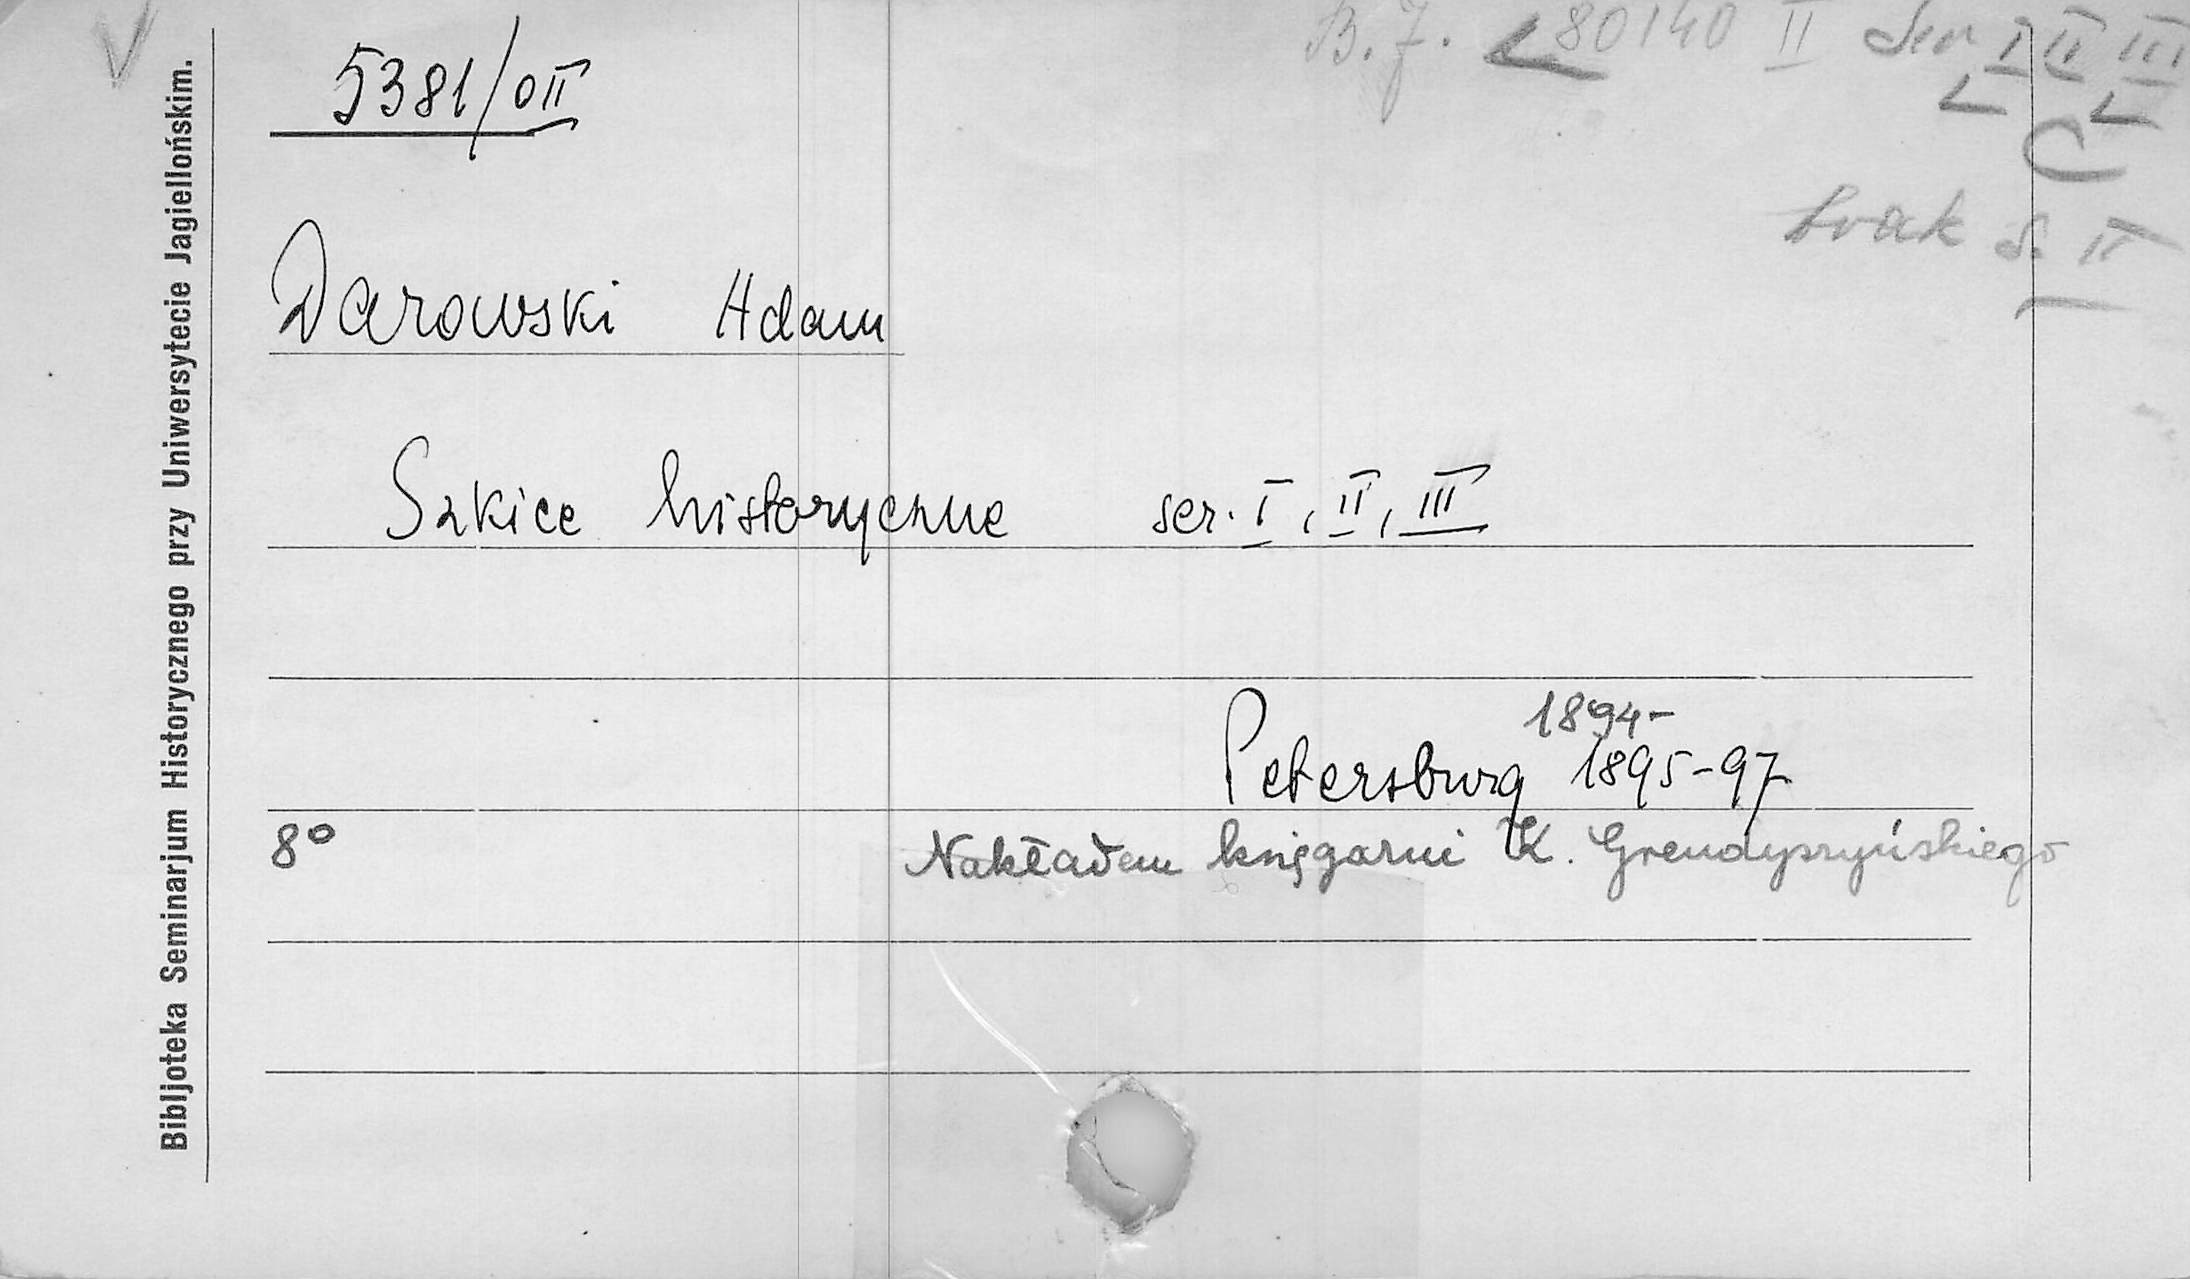 B. J. 80140 II Ser I II III
5381/OII
brak s. II
Darowski Adam
Szkice historyczne ser. I, II, III
1894-
Petersburg 1895-97
8° Nakładem księgarni K. Grendyszyńskiego
Bibljoteka Seminarjum Historycznego przy Uniwersytecie Jagiellońskim.